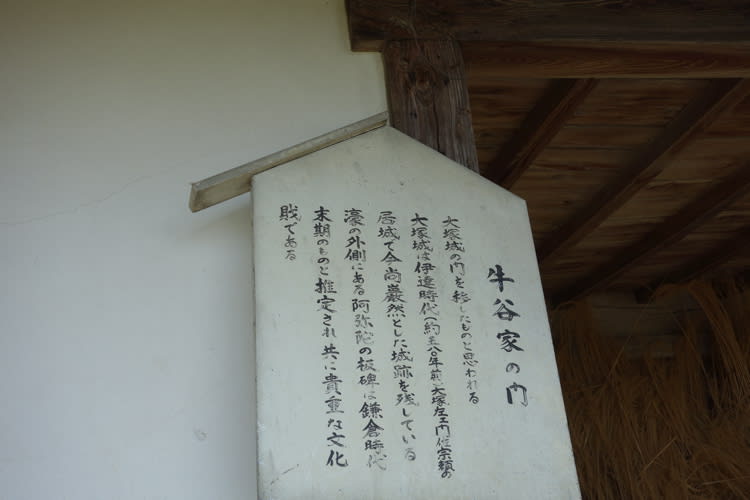 牛谷家の門
大塚城の門を移したものと思われる
大塚城は伊達時代(約五八〇年前)大塚左エ門位宗頼の
居城で今尚巌然とした城跡を残している
濠の外側にある阿弥陀の板碑は鎌倉時代
末期のものと推定され共に貴重な文化
財である